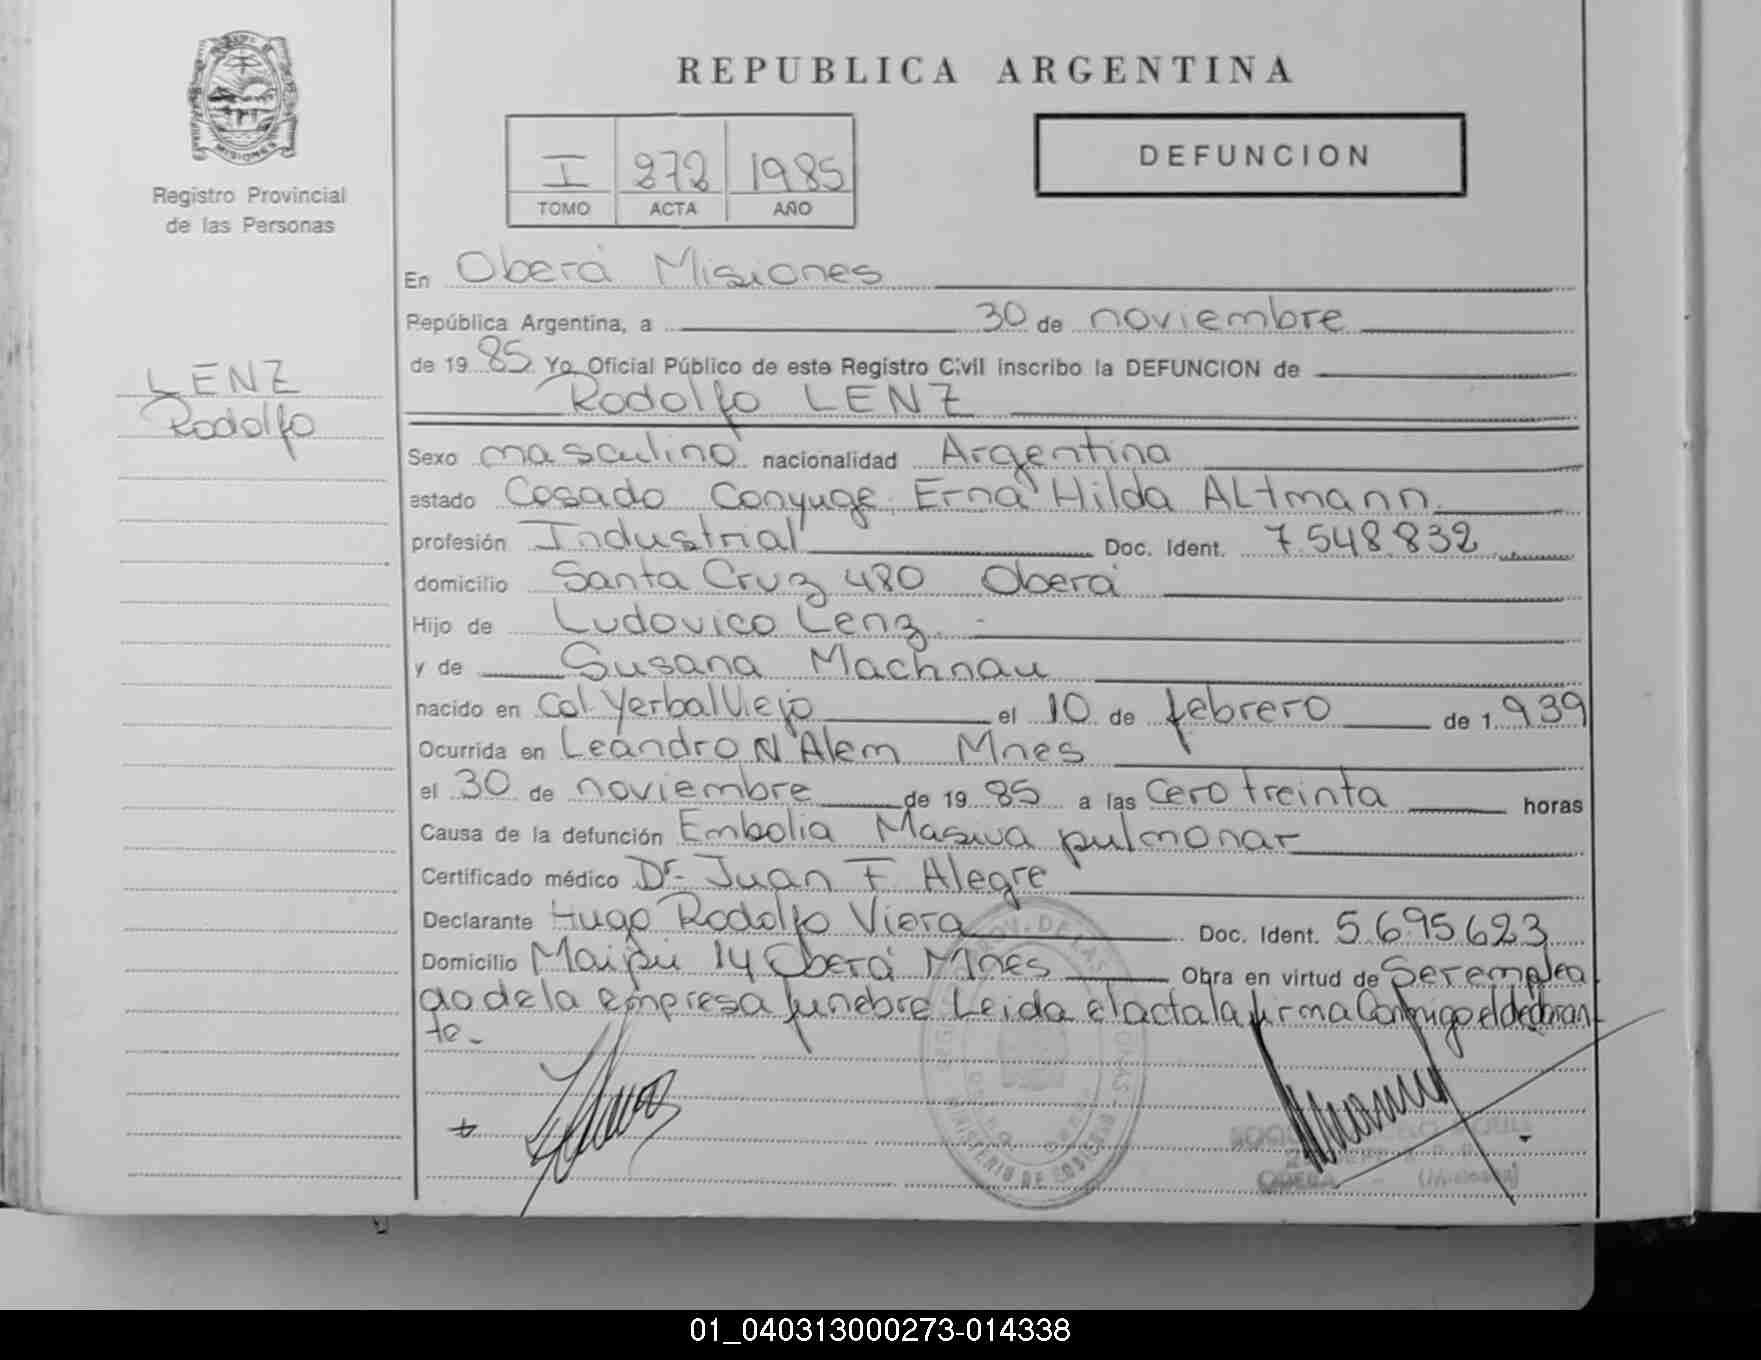 REPUBLICA ARGENTINA
MISIONES
Registro Provincial
de las Personas
I 272 1985
TOMO ACTA AÑO
DEFUNCION
LENZ
Rodolfo
En Oberá Misiones
República Argentina, a 30 de noviembre
de 1985 Yo Oficial Público de este Registro Civil inscribo la DEFUNCION de
Rodolfo LENZ
Sexo masculino nacionalidad Argentina
estado Casado Conyuge Erna Hilda ALtmann
profesión Industrial Doc. Ident. 7.548.832
domicilio Santa Cruz 480 Oberá
Hijo de Ludovico Lenz
y de Susana Machnau
nacido en Col. Yerbal Viejo el 10 de febrero de 1.939
Ocurrida en Leandro N Alem Mnes
el 30 de noviembre de 1985 a las Cero treinta horas
Causa de la defunción Embolia Masiva pulmonar
Certificado médico Dr. Juan F. Alegre
Declarante Hugo Rodolfo Viera Doc. Ident. 5.695.623
Domicilio Maipú 14 Oberá Mnes Obra en virtud de Ser emplea
do de la empresa funebre Leida el acta la firma Conmigo el declaran
te.
OBERA (Misiones)
01_040313000273-014338